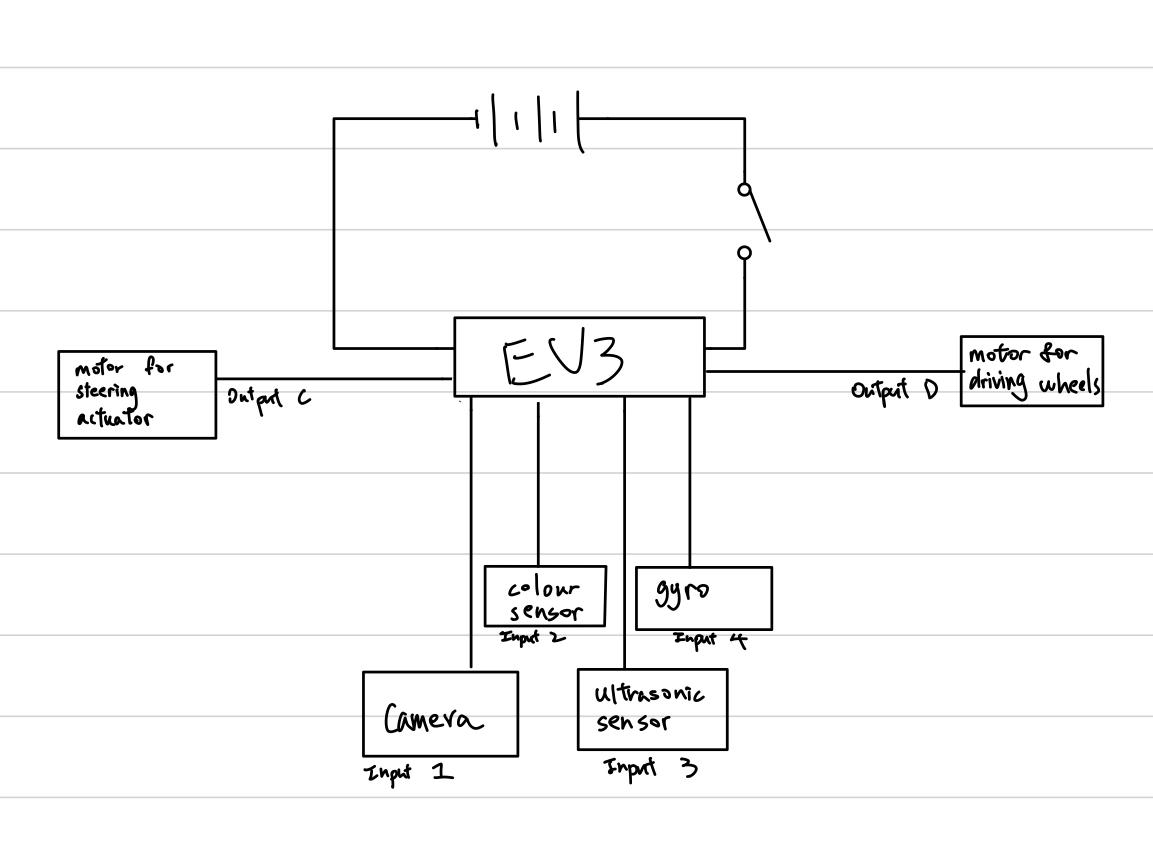 EV3
motor for
steering
actuator
Output C
Output D
motor for
driving wheels
colour
sensor
Input 2
gyro
Input 4
Camera
Input 1
ultrasonic
sensor
Input 3